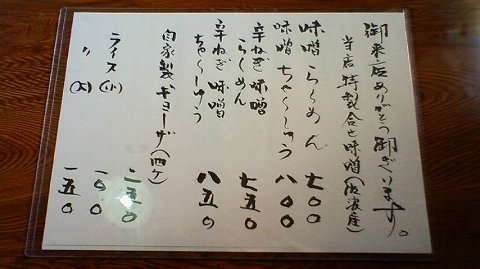 御来店ありがとう御ざいます。
当店特製合せ味噌(佐渡産)
味噌らーめん 七〇〇
味噌ちゃーしゅう 八〇〇
辛ねぎ味噌らーめん 七五〇
辛ねぎ味噌ちゃーしゅう 八五〇
自家製ギョーザ(四ケ) 二五〇
ライス(小) 一〇〇
〃(大) 一五〇